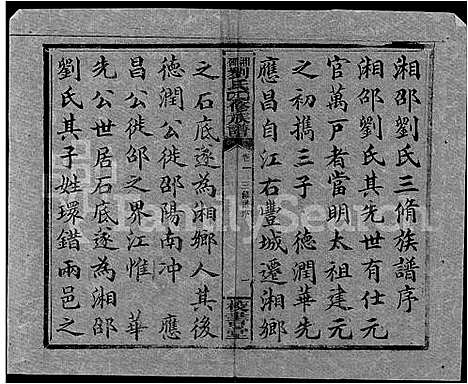 湘邵劉氏三脩族譜序
湘邵劉氏其先世有仕元
官萬戸者當明太祖建元
之初攜三子 德潤華先
應昌自江右豐城遷湘鄉
之石底遂為湘鄉人其後
德潤公徙邵陽南冲 應
昌公徙邵之界江惟 華
先公世居石底遂為湘邵
劉氏其子姓環錯兩邑之
劉氏三修族譜
卷一
FamilySearch